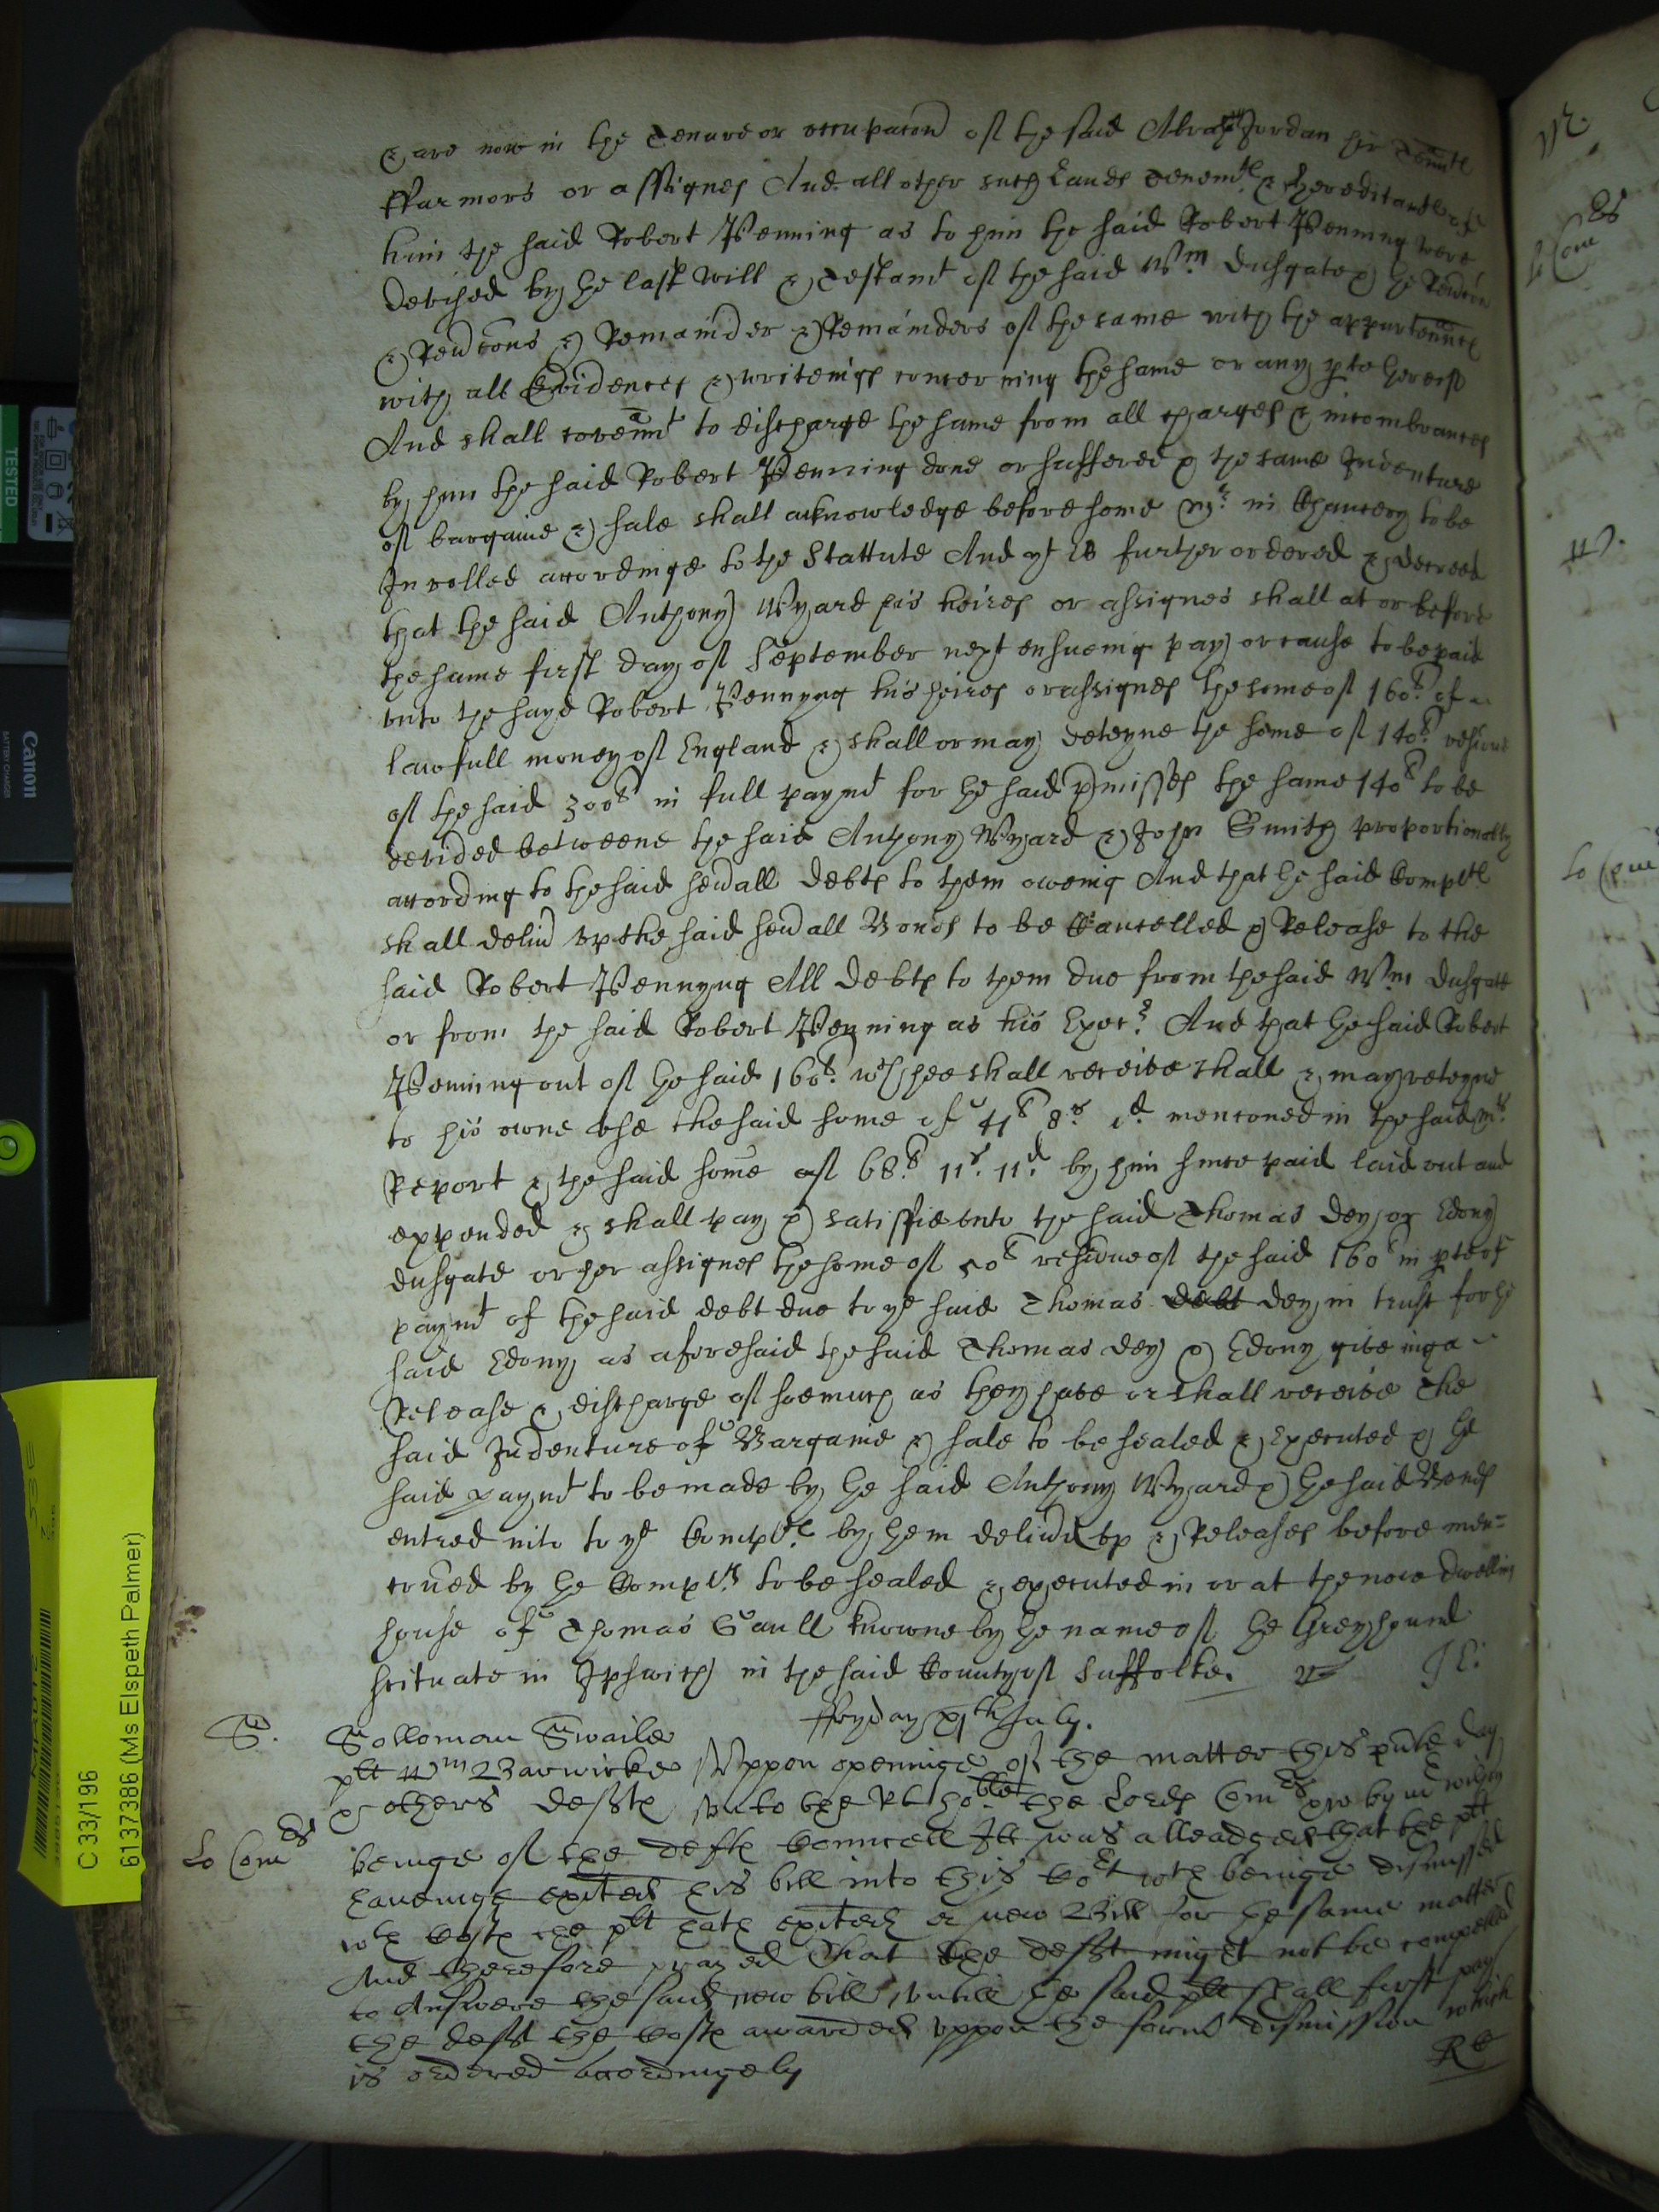 & are now in the Tenure or occupacon of the said Abrah Jordan his Tennts
ffarmors or assignes And all other such Lands tenemts & hereditamts of
him the said Robert Penning as to him the said Robert Penning were
devised by the last Will & Testamt of the said Wm Dusgate & the Revercon
& Revcons & Remainder & Remainders of the same with the appurtennces
with all Evidences & writeings concerning the same or any pte thereof
And shall covennt to discharge the same from all charges & incombrances
by him the said Robert Penning done or suffered & the same Indenture
of bargaine & sale shall acknowledge before some Mr. in Chancery to be
Inrolled accordinge to the Stattute And yt is further ordered & decreed
that the said Anthony Wyard his heires or assignes shall at or before
the same first day of September next ensueing pay or cause to be paid
unto the sayd Robert Pennyng his heires or assignes the some of 160l. of
lawfull money of England & shall or may deteyne the some of 140l. residue
of the said 300l in full paymt for the said pmisses the same 140l to be
devided betweene the said Anthony Wyard & John Smith proportionally
according to the said sevall Debts to them oweing And that the said Complts
shall delivr up the said sevall Bonds to be Cancelled & Release to the
said Robert Pennyng All Debts to them due from the said Wm Dusgate
or from the said Robert Penning as his Execr. And that the said Robert
Penning out of the said 160l. wch hee shall receive shall & may reteyne
to his owne use the said some of 41l 8s. 1d. mencioned in the said Mrs.
Report & the said some of 68l. 11s. 11d. by him since paid laid out and
expended & shall pay & satisfie unto the said Thomas Dey or Edony
Dusgate or her assignes the some of 50l residue of the said 160l in pte of
paymt of the said debt due to ye said Thomas debt Dey in trust for the
said Edony as aforesaid the said Thomas Dey & Edony giveinga
Release & discharge of soemuch as they have or shall receive The
said Indenture of Bargaine & sale to be sealed & Executed & the
said paymt to be made by the said Anthony Wyard & the said Bonds
entred into to ye Complts. by them delivd up & Releases before men=
coned by the Complts. to be sealed & executed in or at the now dwelling
house of Thomas Gaull knowne by the name of the Greyhound
scituate in Ipswich in the said County of Suffolke.
J E:
ffryday xjth July.
S. Solloman Swaile
plt Wm Barwicke Uppon openinge of the matter this psnte day
& others Defts unto the Rt hoble the Lords Comrs by Mr Wilson
Lo Comrs beinge of the Defts Councell Itt was alleadged that the plt
haveinge exited his bill into this Cort wch beinge dismissed
wth Costs the plt hath exited a new Bill for the same matter
And therefore prayed That the Defts might not be compelled
to Answere the said new bill untill the said plt shall first pay
the Defts the Costs awarded uppon the formr dismission which
is ordered accordingely
TESTED
Canon
BATTERY CHARGER
C 33/196
6137386 (Ms Elspeth Palmer)